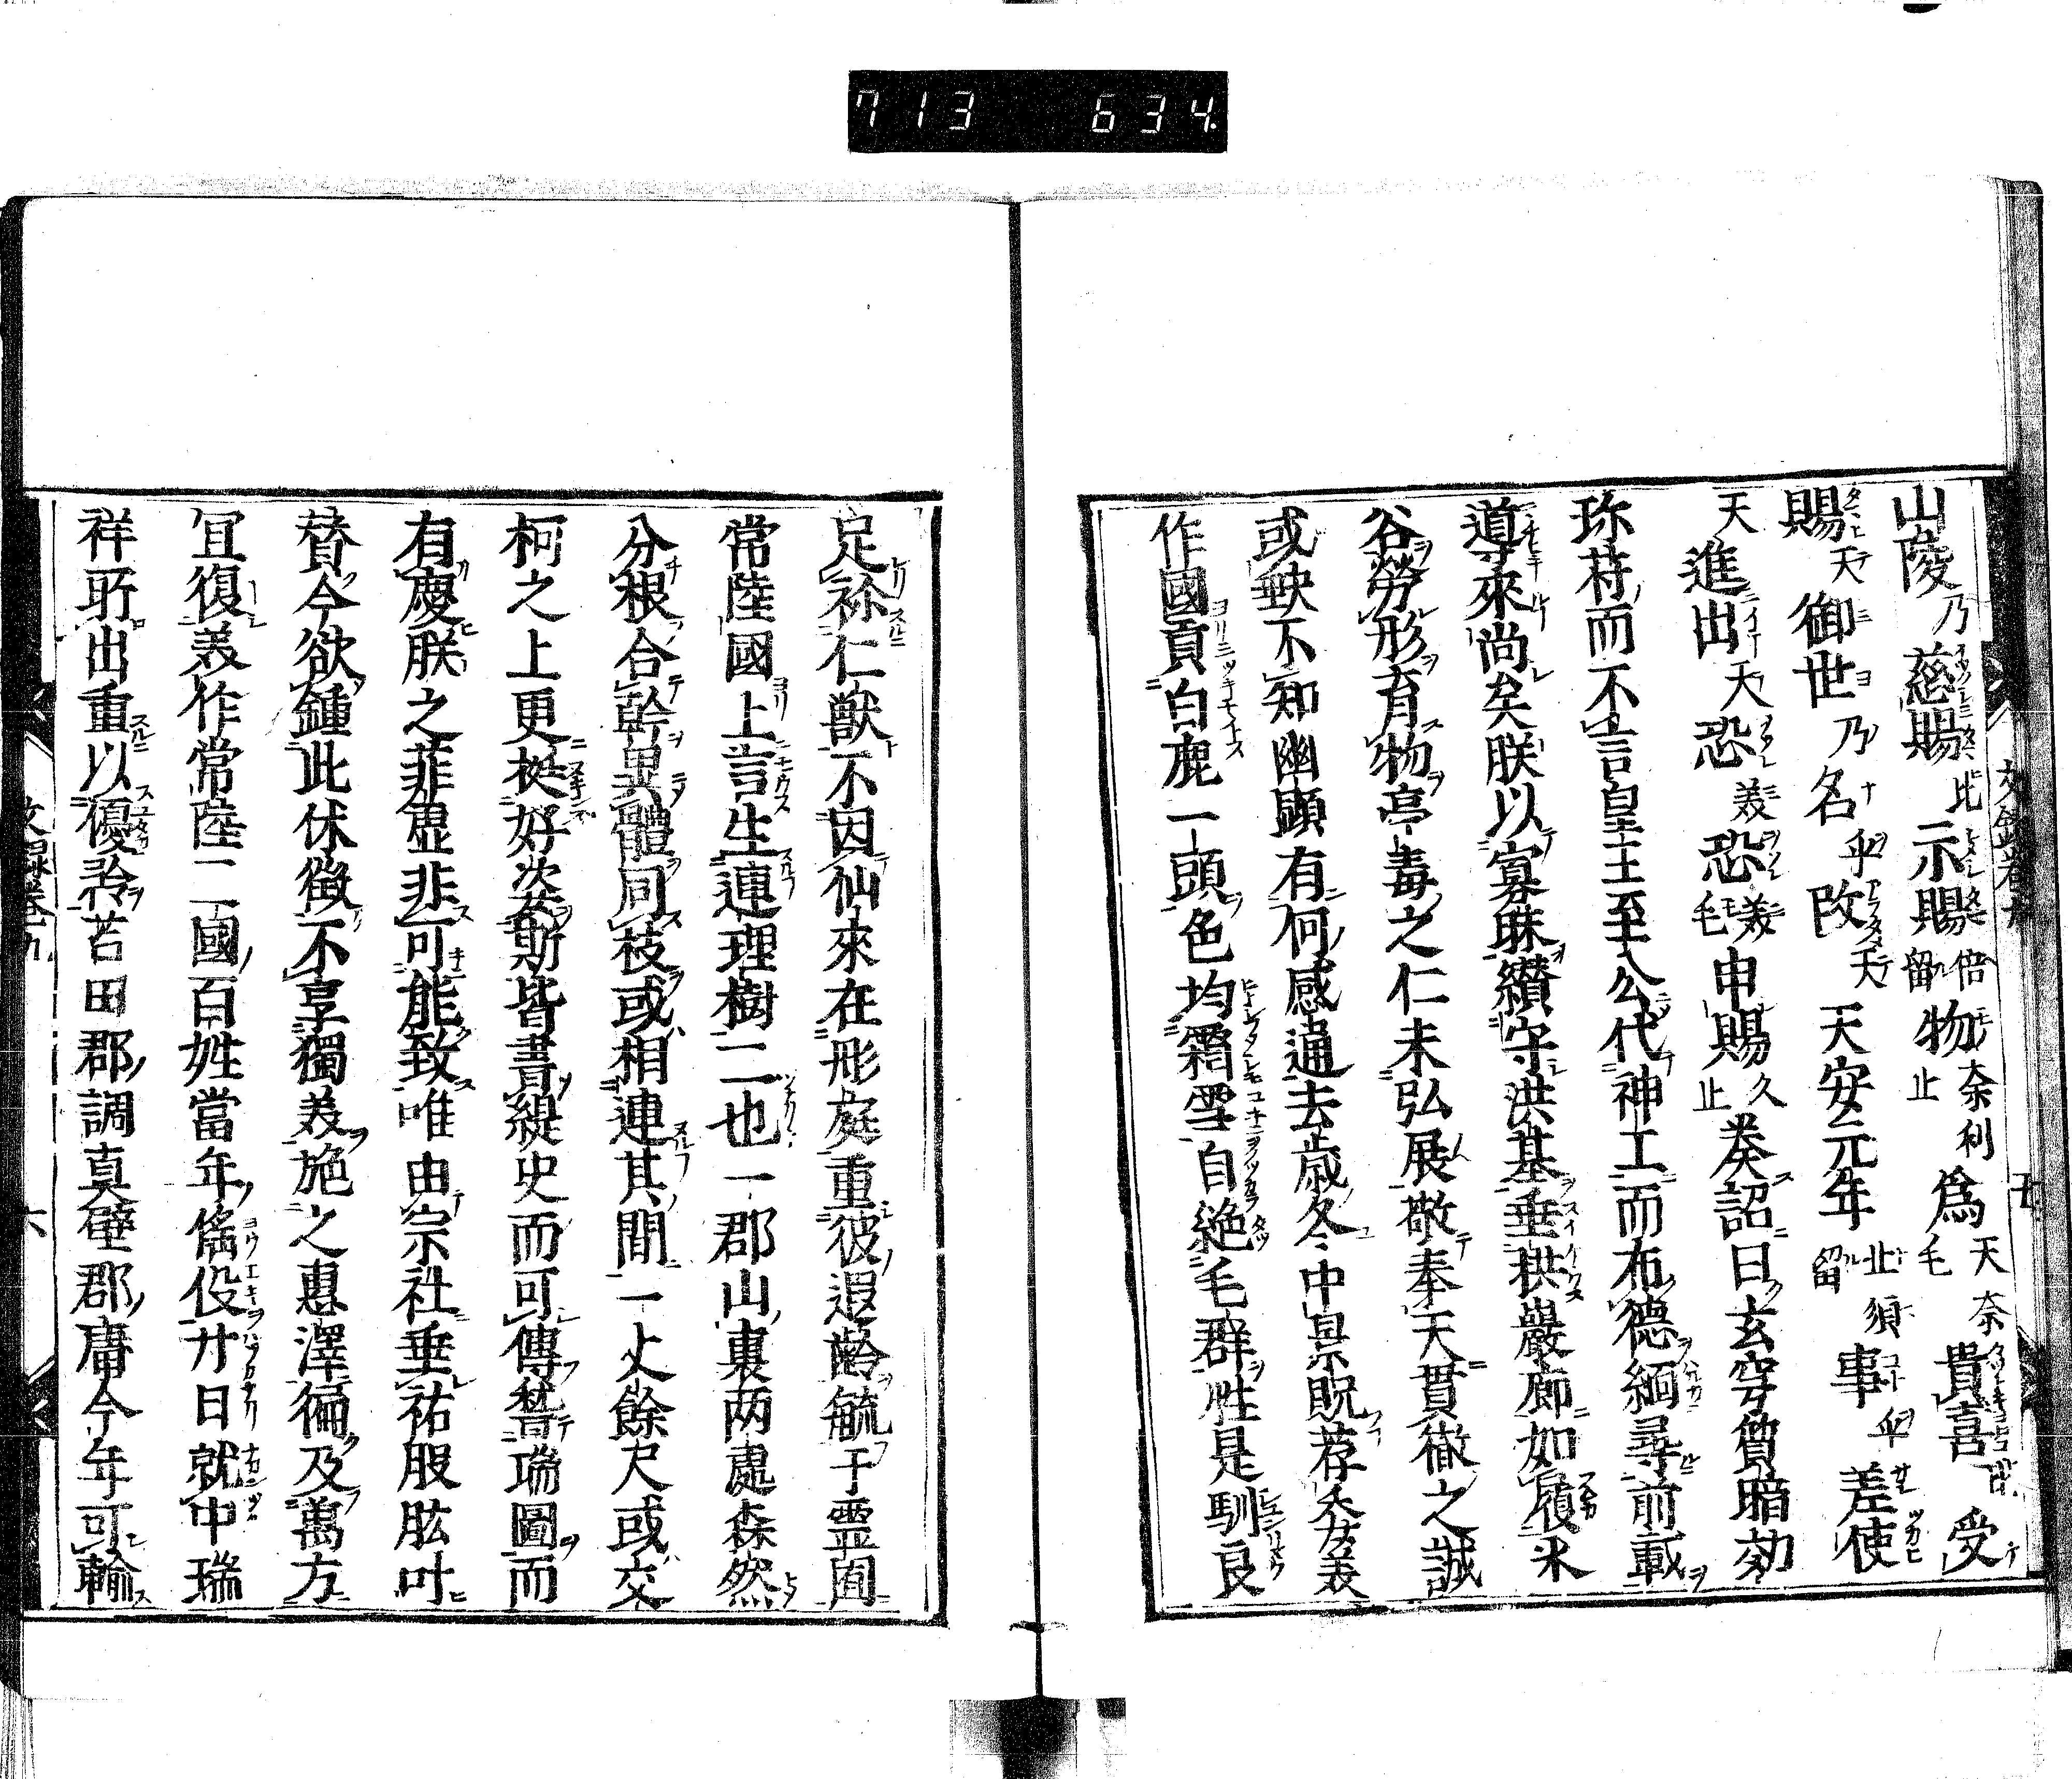 713 634
山陵乃慈賜比示賜倍留物止奈利爲天毛奈貴喜受
賜天御世乃名乎改天天安元年止留須事乎差使
天進出天恐美恐美毛申賜久止奏詔曰玄穹質暗効
珎苻而不言皇王至公代神工而布德緬尋前載
導來尚矣朕以寡昧纉守洪基垂拱巖廊如履氷
谷勞形育物亭毒之仁未弘展敬奉天貫徹之誠
或缺不知幽顯有何感通去歳冬中景貺荐委美
作國貢白鹿一頭色均霜雪自絶毛群性是馴良
足祢仁獸不因仙來在彤庭重彼遐齡毓于霊囿
常陸國上言生連理樹二也一郡山裏两處森然
分根合幹異體同枝或相連其間一丈餘尺或交
柯之上更挺好姿斯皆書緹史而可傳瞀瑞圖而
有慶朕之菲虚非可能致唯由宗社垂祐股肱叶
賛今欲鍾此休徴不享獨美施之惠澤徧及萬方
冝復美作常陸二國百姓當年傜役廿日就中瑞
祥所出重以優矜苫田郡調真壁郡庸今年可輸
文錄卷九 五
文錄卷九 六